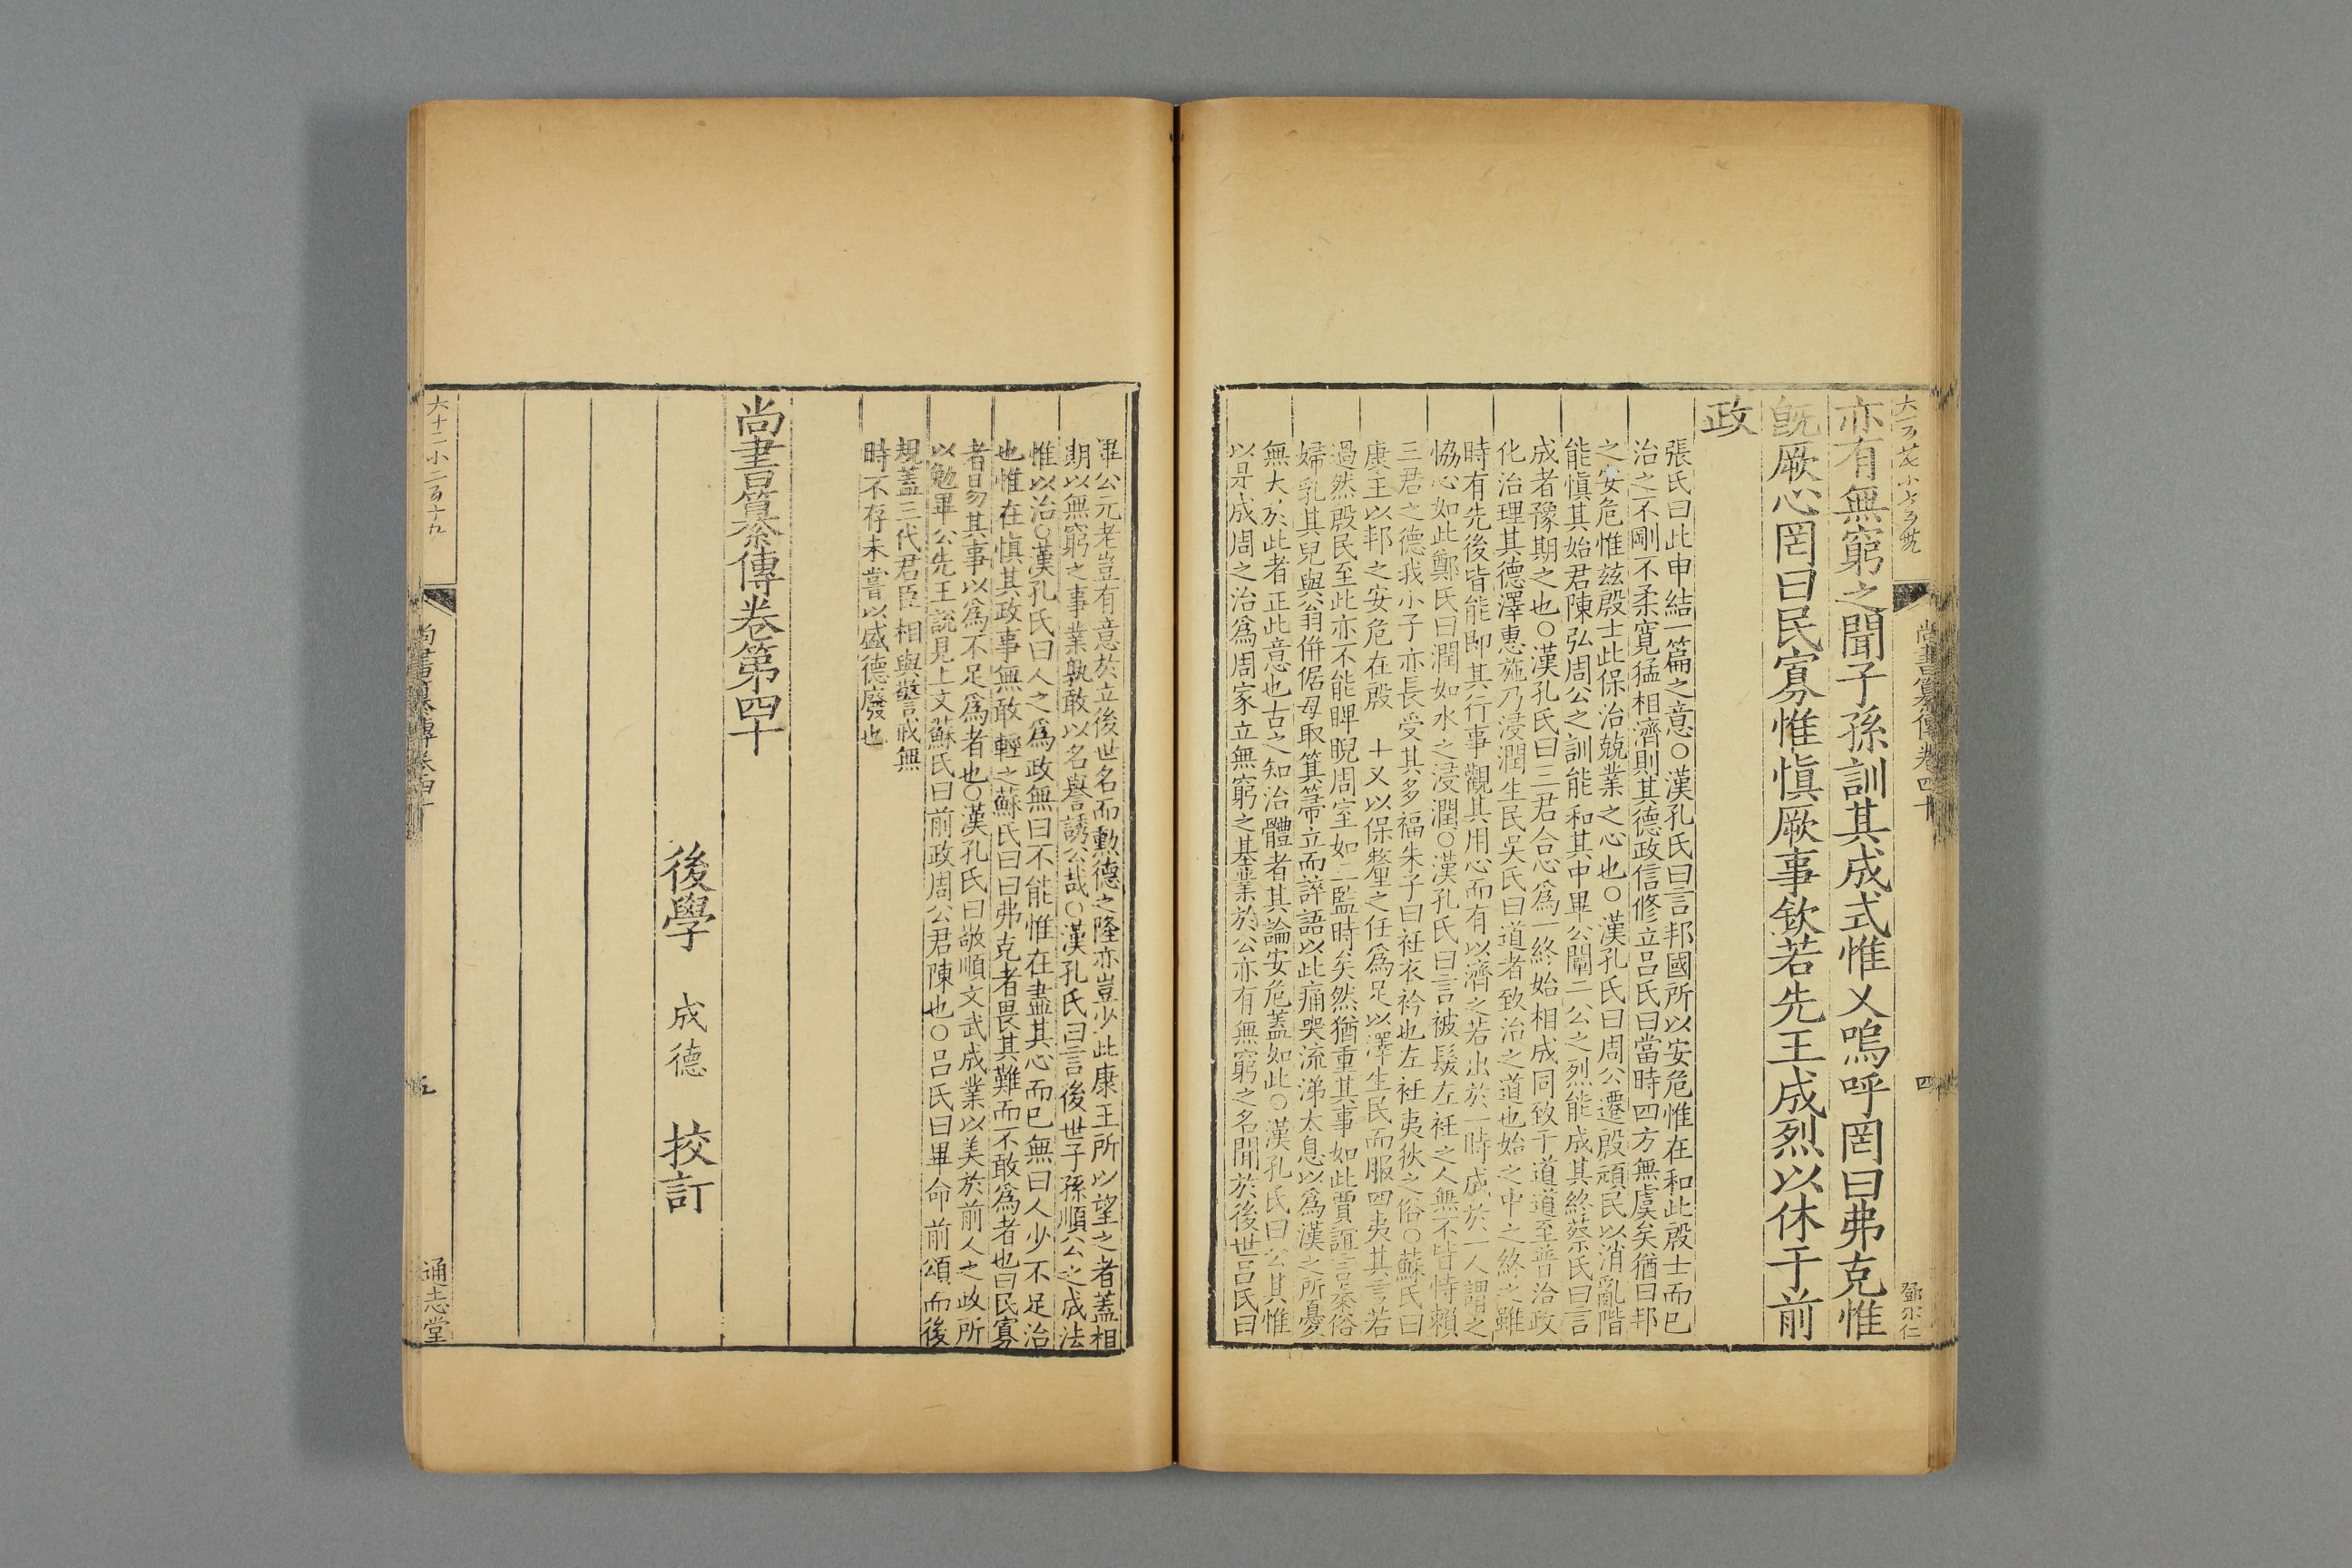 亦有無窮之聞子孫訓其成式惟乂嗚呼罔曰弗克惟
旣厥心罔曰民寡惟愼厥事欽若先王成烈以休于前
政
張氏曰此申結一篇之意○漢孔氏曰言邦國所以安危惟在和此殷士而已
治之不剛不柔寬猛相濟則其德政信修立呂氏曰當時四方無虞矣猶曰邦
之安危惟兹殷士此保治兢業之心也○漢孔氏曰周公遷殷頑民以消亂階
能愼其始君陳弘周公之訓能和其中畢公闡二公之烈能成其終蔡氏曰言
成者豫期之也○漢孔氏曰三君合心爲一終始相成同致于道道至普洽政
化治理其德澤惠施乃浸潤生民吳氏曰道者致治之道也始之中之終之雖
時有先後皆能即其行事觀其用心而有以濟之若出於一時成於一人謂之
恊心如此鄭氏曰潤如水之浸潤○漢孔氏曰言被髮左衽之人無不皆恃賴
三君之德我小子亦長受其多福朱子曰衽衣衿也左衽夷狄之俗○蘇氏曰
康王以邦之安危在殷 十又以保釐之任爲足以澤生民而服四夷其言若
過然殷民至此亦不能睥睨周室如二監時矣然猶重其事如此賈誼言秦俗
婦乳其兒與翁倂倨母取箕箒立而誶語以此痛哭流涕太息以爲漢之所憂
無大於此者正此意也古之知治體者其論安危蓋如此○漢孔氏曰公其惟
以是成周之治爲周家立無窮之基業於公亦有無窮之名聞於後世呂氏曰
尚書纂傳卷四十
四
鄧尔仁
畢公元老豈有意於立後世名而勳德之隆亦豈少此康王所以望之者蓋相
期以無窮之事業孰敢以名譽誘公哉○漢孔氏曰言後世子孫順公之成法
惟以治○漢孔氏曰人之爲政無曰不能惟在盡其心而已無曰人少不足治
也惟在愼其政事無敢輕之蘇氏曰曰弗克者畏其難而不敢爲者也曰民寡
者易其事以爲不足爲者也○漢孔氏曰敬順文武成業以美於前人之政所
以勉畢公先王說見上文蘇氏曰前政周公君陳也○呂氏曰畢命前頌而後
規蓋三代君臣相與警戒無
時不存未嘗以盛德廢也
尚書纂傳卷第四十
後學 成德 挍訂
六十二小二百十九
尚書纂傳卷四十
五
通志堂